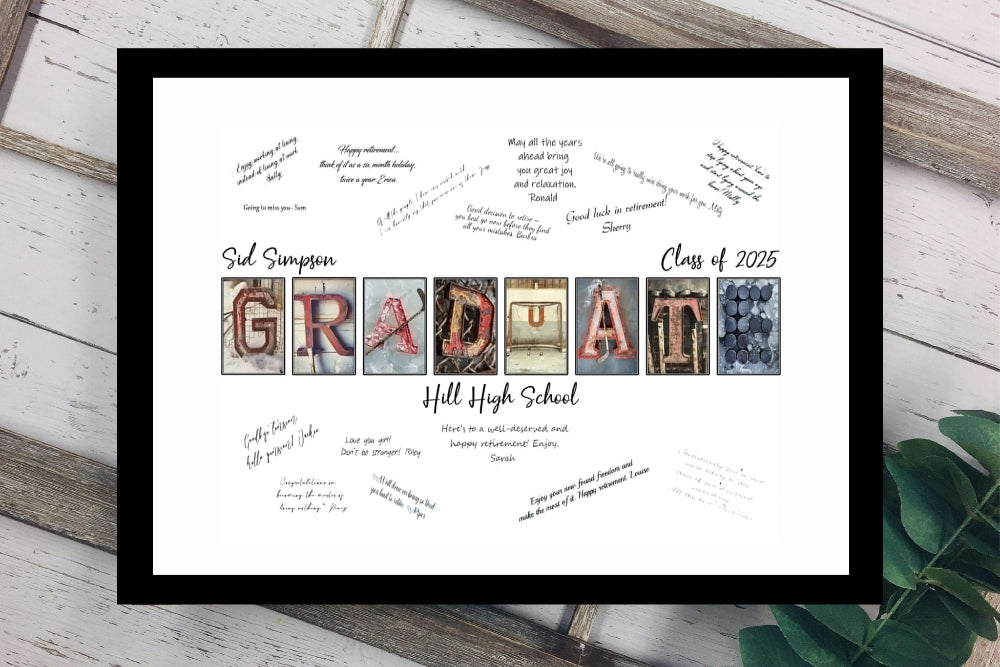 Enjoy working at living,
instead of living at work.
Sally.
Happy retirement...
think of it as a six month holiday,
twice a year. Erica
May all the years
ahead bring
you great joy
and relaxation.
Ronald
We're all going to really miss being your work for you. Meg
Happy retirement. Time to
stop lying about your age
and start lying around the
house! Molly
Going to miss you - Sam
of all the people I have ever worked with,
Good decision to retire –
you best go now before they find
all your mistakes. Barbra
Good luck in retirement!
Sherry
Sid Simpson
Class of 2025
GRADUATE
Hill High School
Goodbye tension
hello pension! Jackie
Love you girl!
Don't be stranger! Riley
Here's to a well-deserved and
happy retirement! Enjoy.
Sarah
Congratulations on
becoming the master of
doing nothing"
Well done on being so tired
you had to retire
Enjoy your new found freedom and
make the most of it. Happy retirement. Louise